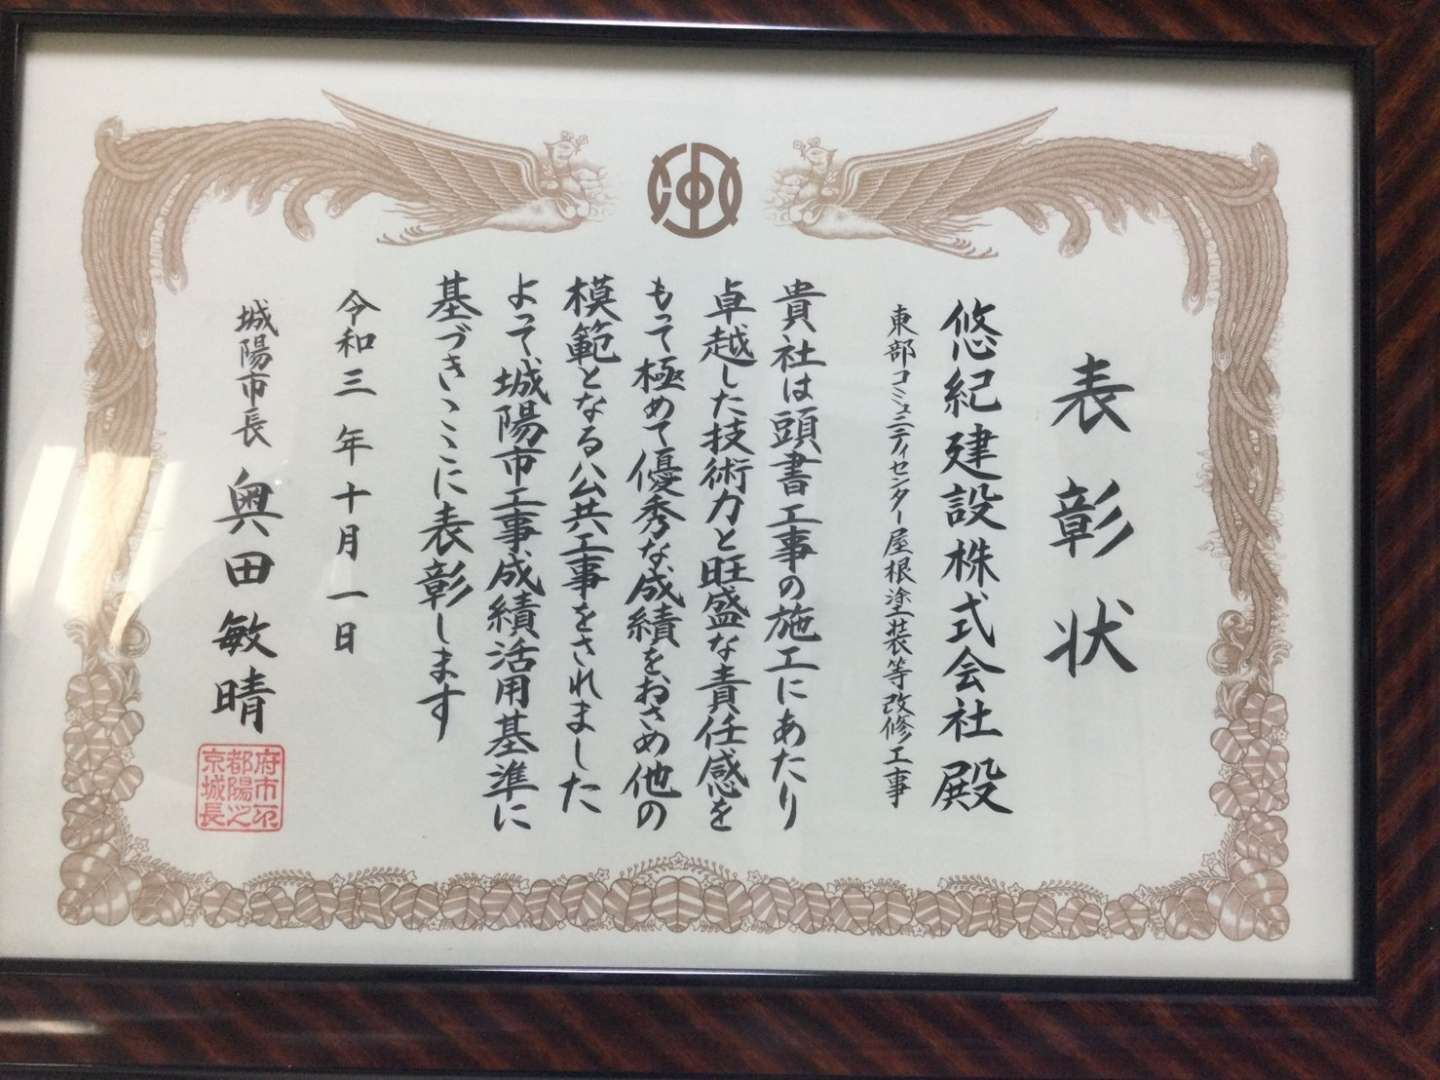 表彰状
悠紀建設株式会社殿
東部コミュニティセンター屋根塗装等改修工事
貴社は頭書工事の施工にあたり
卓越した技術力と旺盛な責任感を
もって極めて優秀な成績をおさめ他の
模範となる公共工事をされました
よって城陽市工事成績活用基準に
基づきここに表彰します
令和三年十月一日
城陽市長 奥田敏晴
府市印
都陽之
京城長